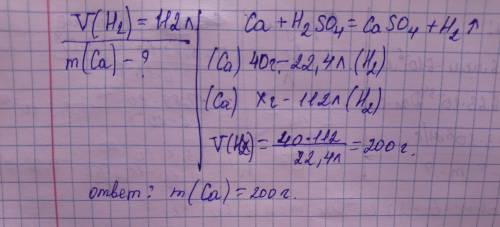 V(H₂) = 112л
m(Ca) - ?
Ca + H₂SO₄ = CaSO₄ + H₂↑
(Ca) 40г - 22,4л (H₂)
(Ca) xг - 112л (H₂)
V(H₂) = 40·112 / 22,4л = 200г.
ответ: m(Ca) = 200г.